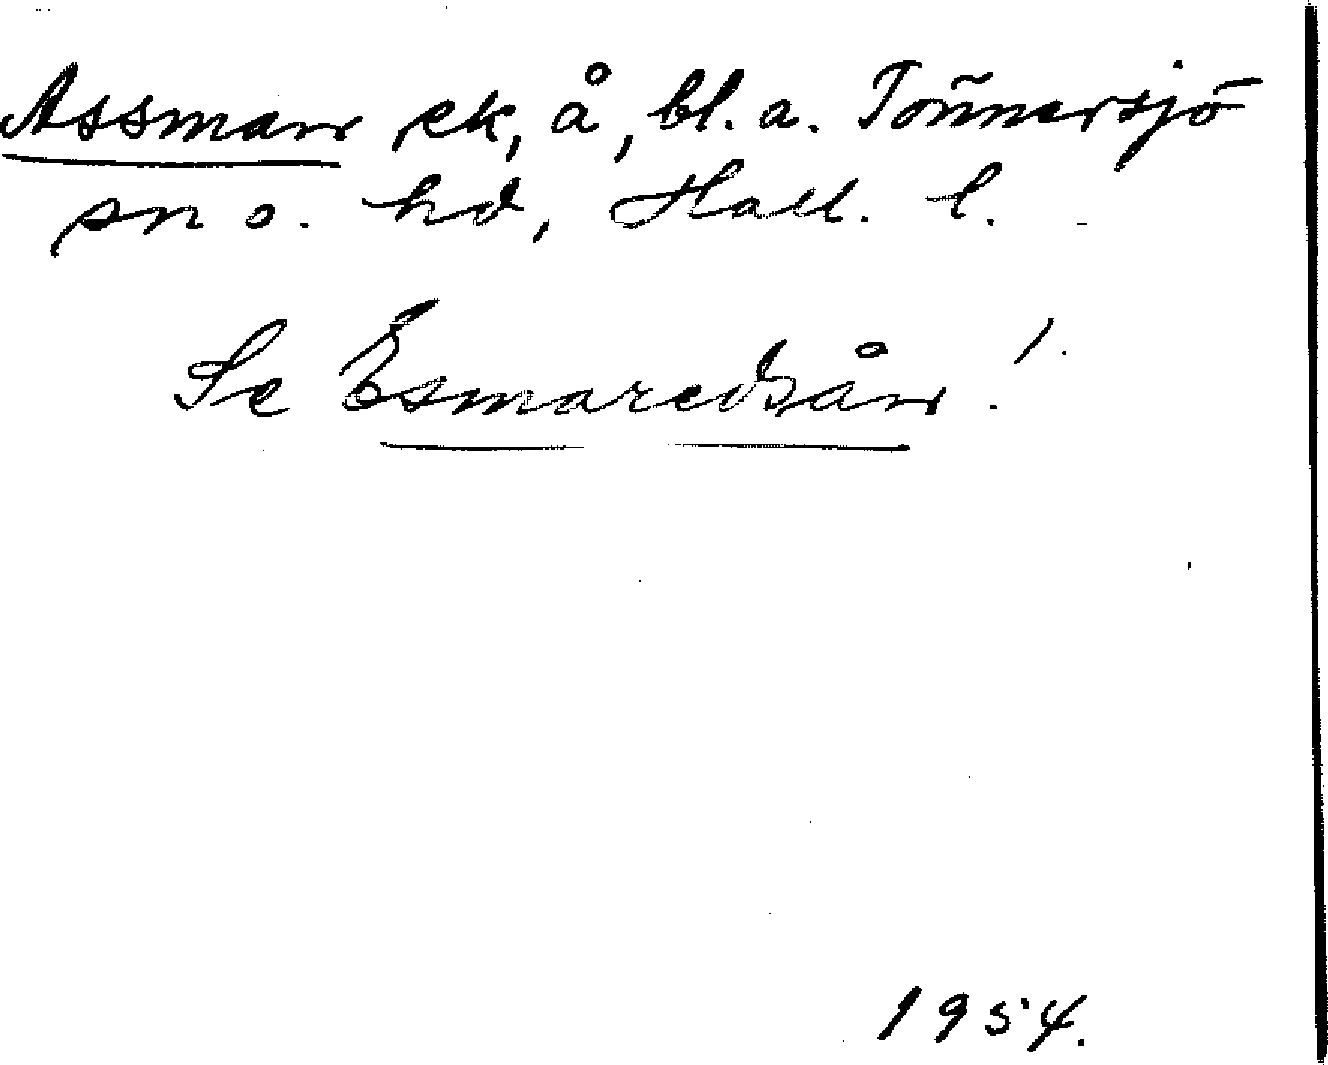 Assman ek, å, bl. a. Tönnersjö
sn o. hd, Hall. l.
Se Esmaredsån!
1954.